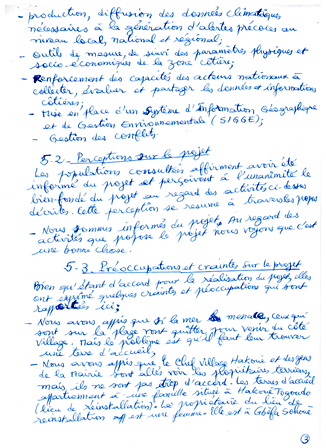 - production, diffusion des données climatiques
nécessaires à la génération d'alertes précoces au
niveau local, national et régional;
- Outils de mesure, de suivi des paramètres physiques et
socio-économiques de la zone côtière;
- Renforcement des capacités des acteurs nationaux à
collecter, évaluer et partager les données et informations
côtières;
- Mise en place d'un Système d'Information Géographique
et de Gestion Environnementale (SIGGE);
- Gestion des conflits
5-2- Perceptions sur le projet
Les populations consultées affirment avoir été
informé du projet et perçoivent à l'unanimité le
bien-fondé du projet au regard des activités ci-dessus
décrites. Cette perception se résume à travers les propos
- Nous sommes informés du projet. Au regard des
activités que propose le projet nous voyons que c'est
une bonne chose.
5-3. Préoccupations et craintes sur le projet
Bien qu'étant d'accord pour la réalisation du projet, elles
ont exprimé quelques craintes et préoccupations qui sont
rapportés ici;
- Nous avons appris que si la mer menace, ceux qui
sont sur la plage vont quitter pour venir du côté
Village. Mais le problème est qu'il faut leur trouver
une terre d'accueil,
- Nous avons appris que le Chef Village Hakoue et des gens
de la Mairie sont allés voir les propriétaires terriens,
mais ils ne sont pas trop d'accord. Les terres d'accueil
appartiennent à une famille située à Hakoue Togondo
(lieu de réinstallation). Le propriétaire du lieu de
réinstallation est une femme. Elle est à Gbèffa
3